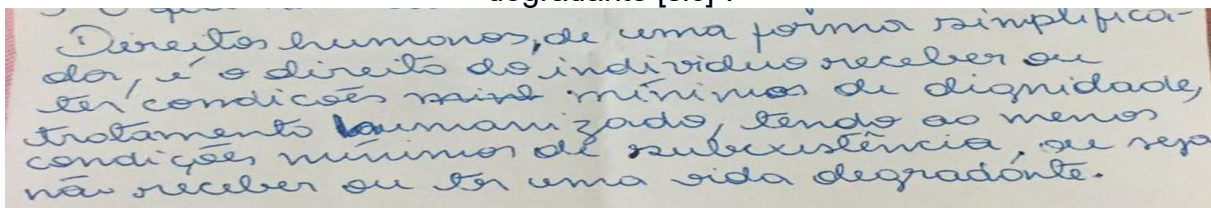 degradante [sic]".
Direitos humanos, de uma forma simplifica-
da, é o direito do individuo receber ou
ter condições minimas de dignidade,
tratamento humanizado, tendo ao menos
condições minimas de subexistência, ou seja
não receber ou ter uma vida degradante.